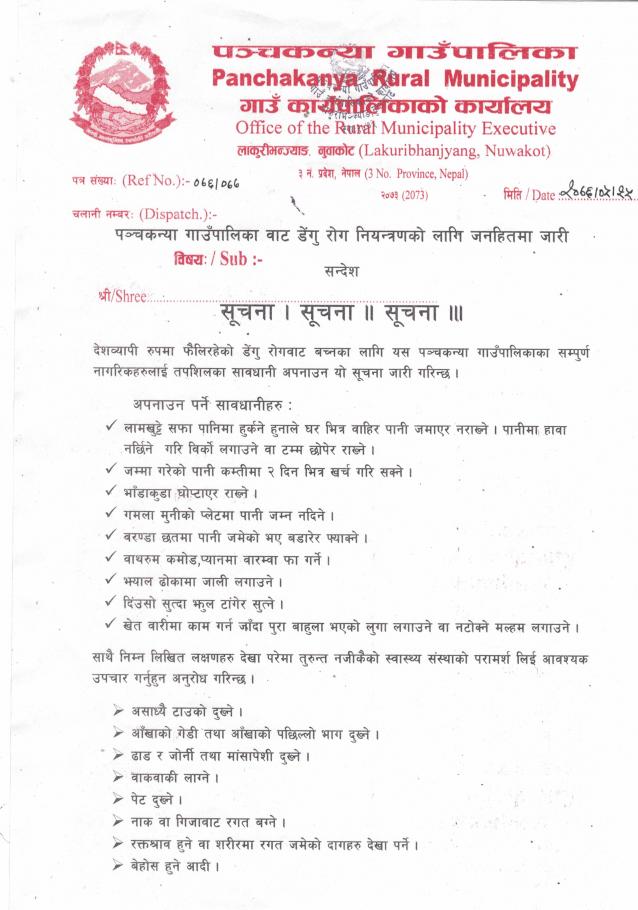 पञ्चकन्या गाउँपालिका
Panchakanya Rural Municipality
गाउँ कार्यपालिकाको कार्यालय
Office of the Rural Municipality Executive
लाकुरीभन्ज्याङ, नुवाकोट (Lakuribhanjyang, Nuwakot)
३ नं. प्रदेश, नेपाल (3 No. Province, Nepal)
२०७३ (2073)
पत्र संख्याः (Ref No.):- ०७६/०७७
मिति / Date
चलानी नम्बरः (Dispatch.):-
पञ्चकन्या गाउँपालिका वाट डेंगु रोग नियन्त्रणको लागि जनहितमा जारी
विषयः / Sub :-
सन्देश
श्री/Shree:
सूचना । सूचना ॥ सूचना ॥।
देशव्यापी रुपमा फैलिरहेको डेंगु रोगवाट बच्नका लागि यस पञ्चकन्या गाउँपालिकाका सम्पुर्ण
नागरिकहरुलाई तपशिलका सावधानी अपनाउन यो सूचना जारी गरिन्छ ।
अपनाउन पर्ने सावधानीहरु :
✓ लामखुट्टे सफा पानिमा हुर्कने हुनाले घर भित्र वाहिर पानी जमाएर नराख्ने । पानीमा हावा
नर्छिने गरि विर्को लगाउने वा टम्म छोपेर राख्ने ।
✓ जम्मा गरेको पानी कम्तीमा २ दिन भित्र खर्च गरि सक्ने ।
✓ भाँडाकुडा घोप्टाएर राख्ने ।
✓ गमला मुनीको प्लेटमा पानी जम्न नदिने ।
✓ बरण्डा छतमा पानी जमेको भए बडारेर फ्याक्ने ।
✓ वाथरुम कमोड,प्यानमा वारम्वा फा गर्ने ।
✓ झ्याल ढोकामा जाली लगाउने ।
✓ दिंउसो सुत्दा झुल टांगेर सुत्ने ।
✓ खेत वारीमा काम गर्न जाँदा पुरा बाहुला भएको लुगा लगाउने वा नटोक्ने मल्हम लगाउने ।
साथै निम्न लिखित लक्षणहरु देखा परेमा तुरुन्त नजीकैको स्वास्थ्य संस्थाको परामर्श लिई आवश्यक
उपचार गर्नुहुन अनुरोध गरिन्छ ।
➢ असाध्यै टाउको दुख्ने ।
➢ आँखाको गेडी तथा आँखाको पछिल्लो भाग दुख्ने ।
➢ ढाड र जोर्नी तथा मांसापेशी दुख्ने ।
➢ वाकवाकी लाग्ने ।
➢ पेट दुख्ने ।
➢ नाक वा गिजावाट रगत बग्ने ।
➢ रक्तश्राव हुने वा शरीरमा रगत जमेको दागहरु देखा पर्ने ।
➢ बेहोस हुने आदी ।